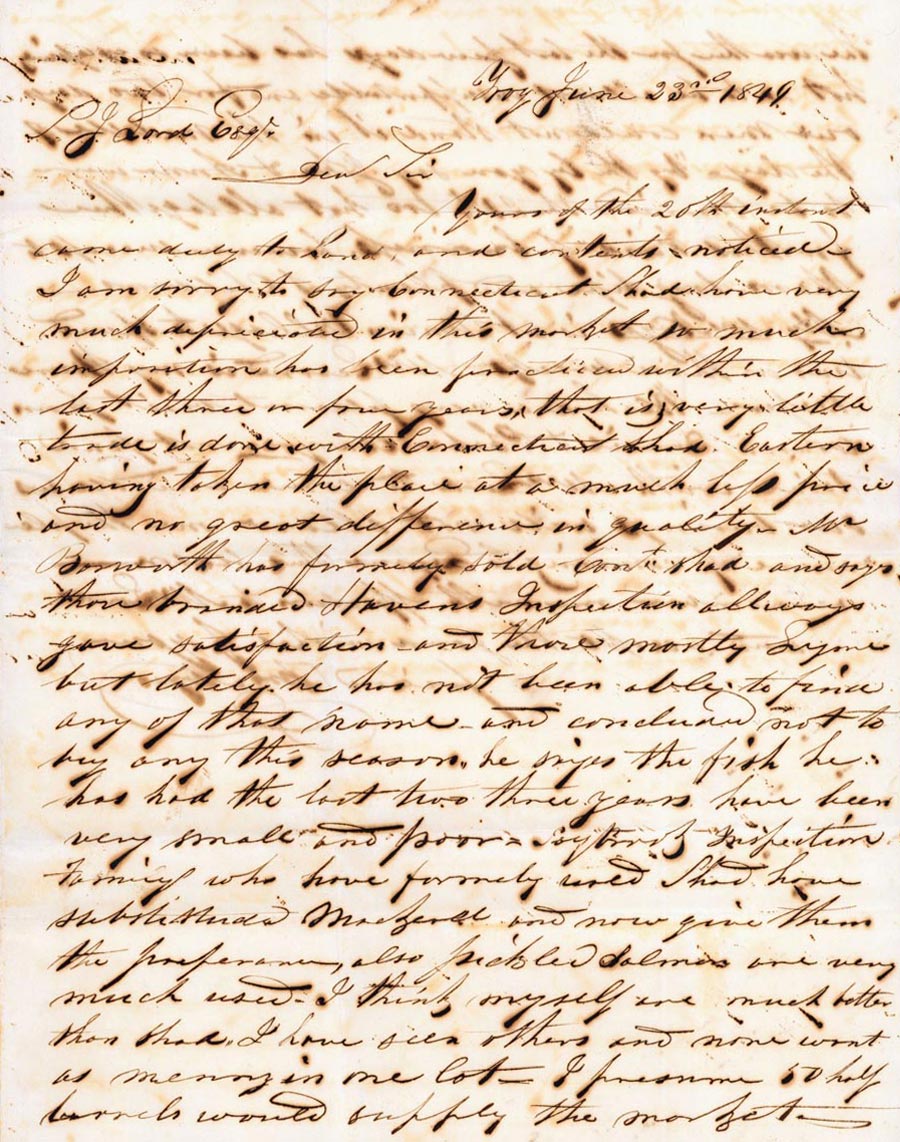 Troy June 23rd 1849
J. Lord Esqr.
Dear Sir
Yours of the 20th instant
came duly to hand, and contents noticed-
I am sorry to say Connecticut Shad have very
much depriciated in this market so much
imposition has been practiced within the
last three or four years, that is, very little
trade is done with Connecticut shad. Eastern
having taken the place at a much less price
and no great difference in quality- Mr
Bosworth has formely sold Cont. shad and says
those branded Havens Inspection allways
gave satisfaction-and those mostly Lyme
but lately he has not been able to find
any of that name-and concluded not to
buy any this season, he says the fish he
has had the last two three years have been
very small and poor- Saybrook Inspection
Familys who have formely used Shad have
substituded Mackerell and now give them
the preferance, also pickled Salmon are very
much used- I think myself are much better
than shad. I have seen others and none want
as menny in one lot- I presume 50 half
barrels would supply the market-